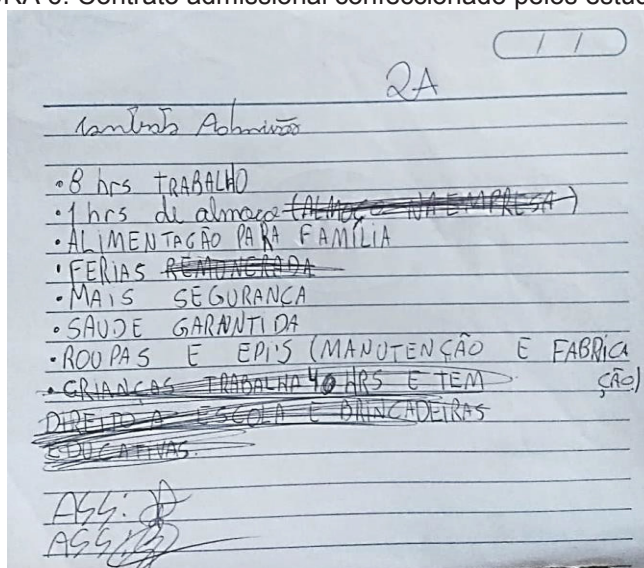 RA 6: Contrato admissional confeccionado pelos estud
/ /
2A
Contrato Admissão
• 8 hrs TRABALHO
• 1 hrs de almoço (ALMOÇO NA EMPRESA)
• ALIMENTAÇÃO PARA FAMÍLIA
• FERIAS REMUNERADA
• MAIS SEGURANÇA
• SAUDE GARANTIDA
• ROUPAS E EPI'S (MANUTENÇÃO E FABRICA
ÇÃO)
• CRIANÇAS TRABALHA 40 HRS E TEM
DIREITO A ESCOLA E BRINCADEIRAS
EDUCATIVAS.
ASS:
ASS